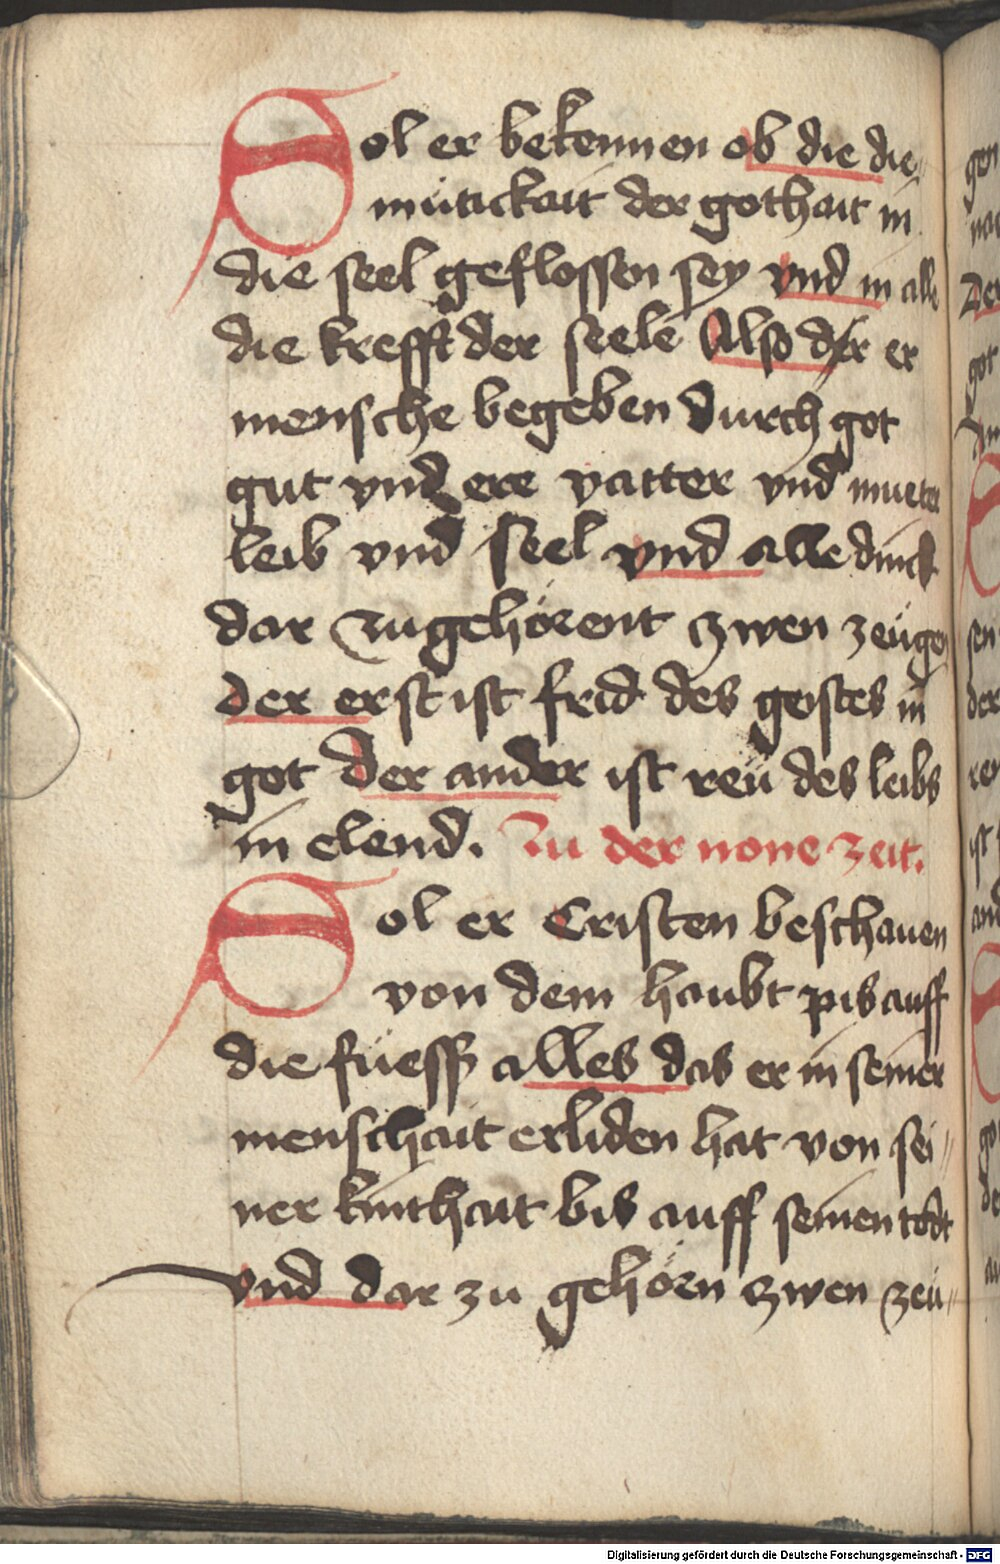 Sol er bekennen ob die die
mütickait der gothait in
die seel geflossen sey vnd in alle
die krefft der seele Also d er
mensche begeben durch got
gut vnd ere vatter vnd mueter
leib vnd seel vnd alle dinck
dar zugehörent zwen zeügen
der erst ist frid des geistes in
got der ander ist reü des leibs
in elend. Zu der none zeit.
Sol er Cristen beschauen
von dem haubt pis auff
die füess alles das er in seiner
menschait erliden hat von sei„
ner kinthait bis auff seinen todt
vnd dar zu gehörn zwen zeü„
Digitalisierung gefördert durch die Deutsche Forschungsgemeinschaft - DFG